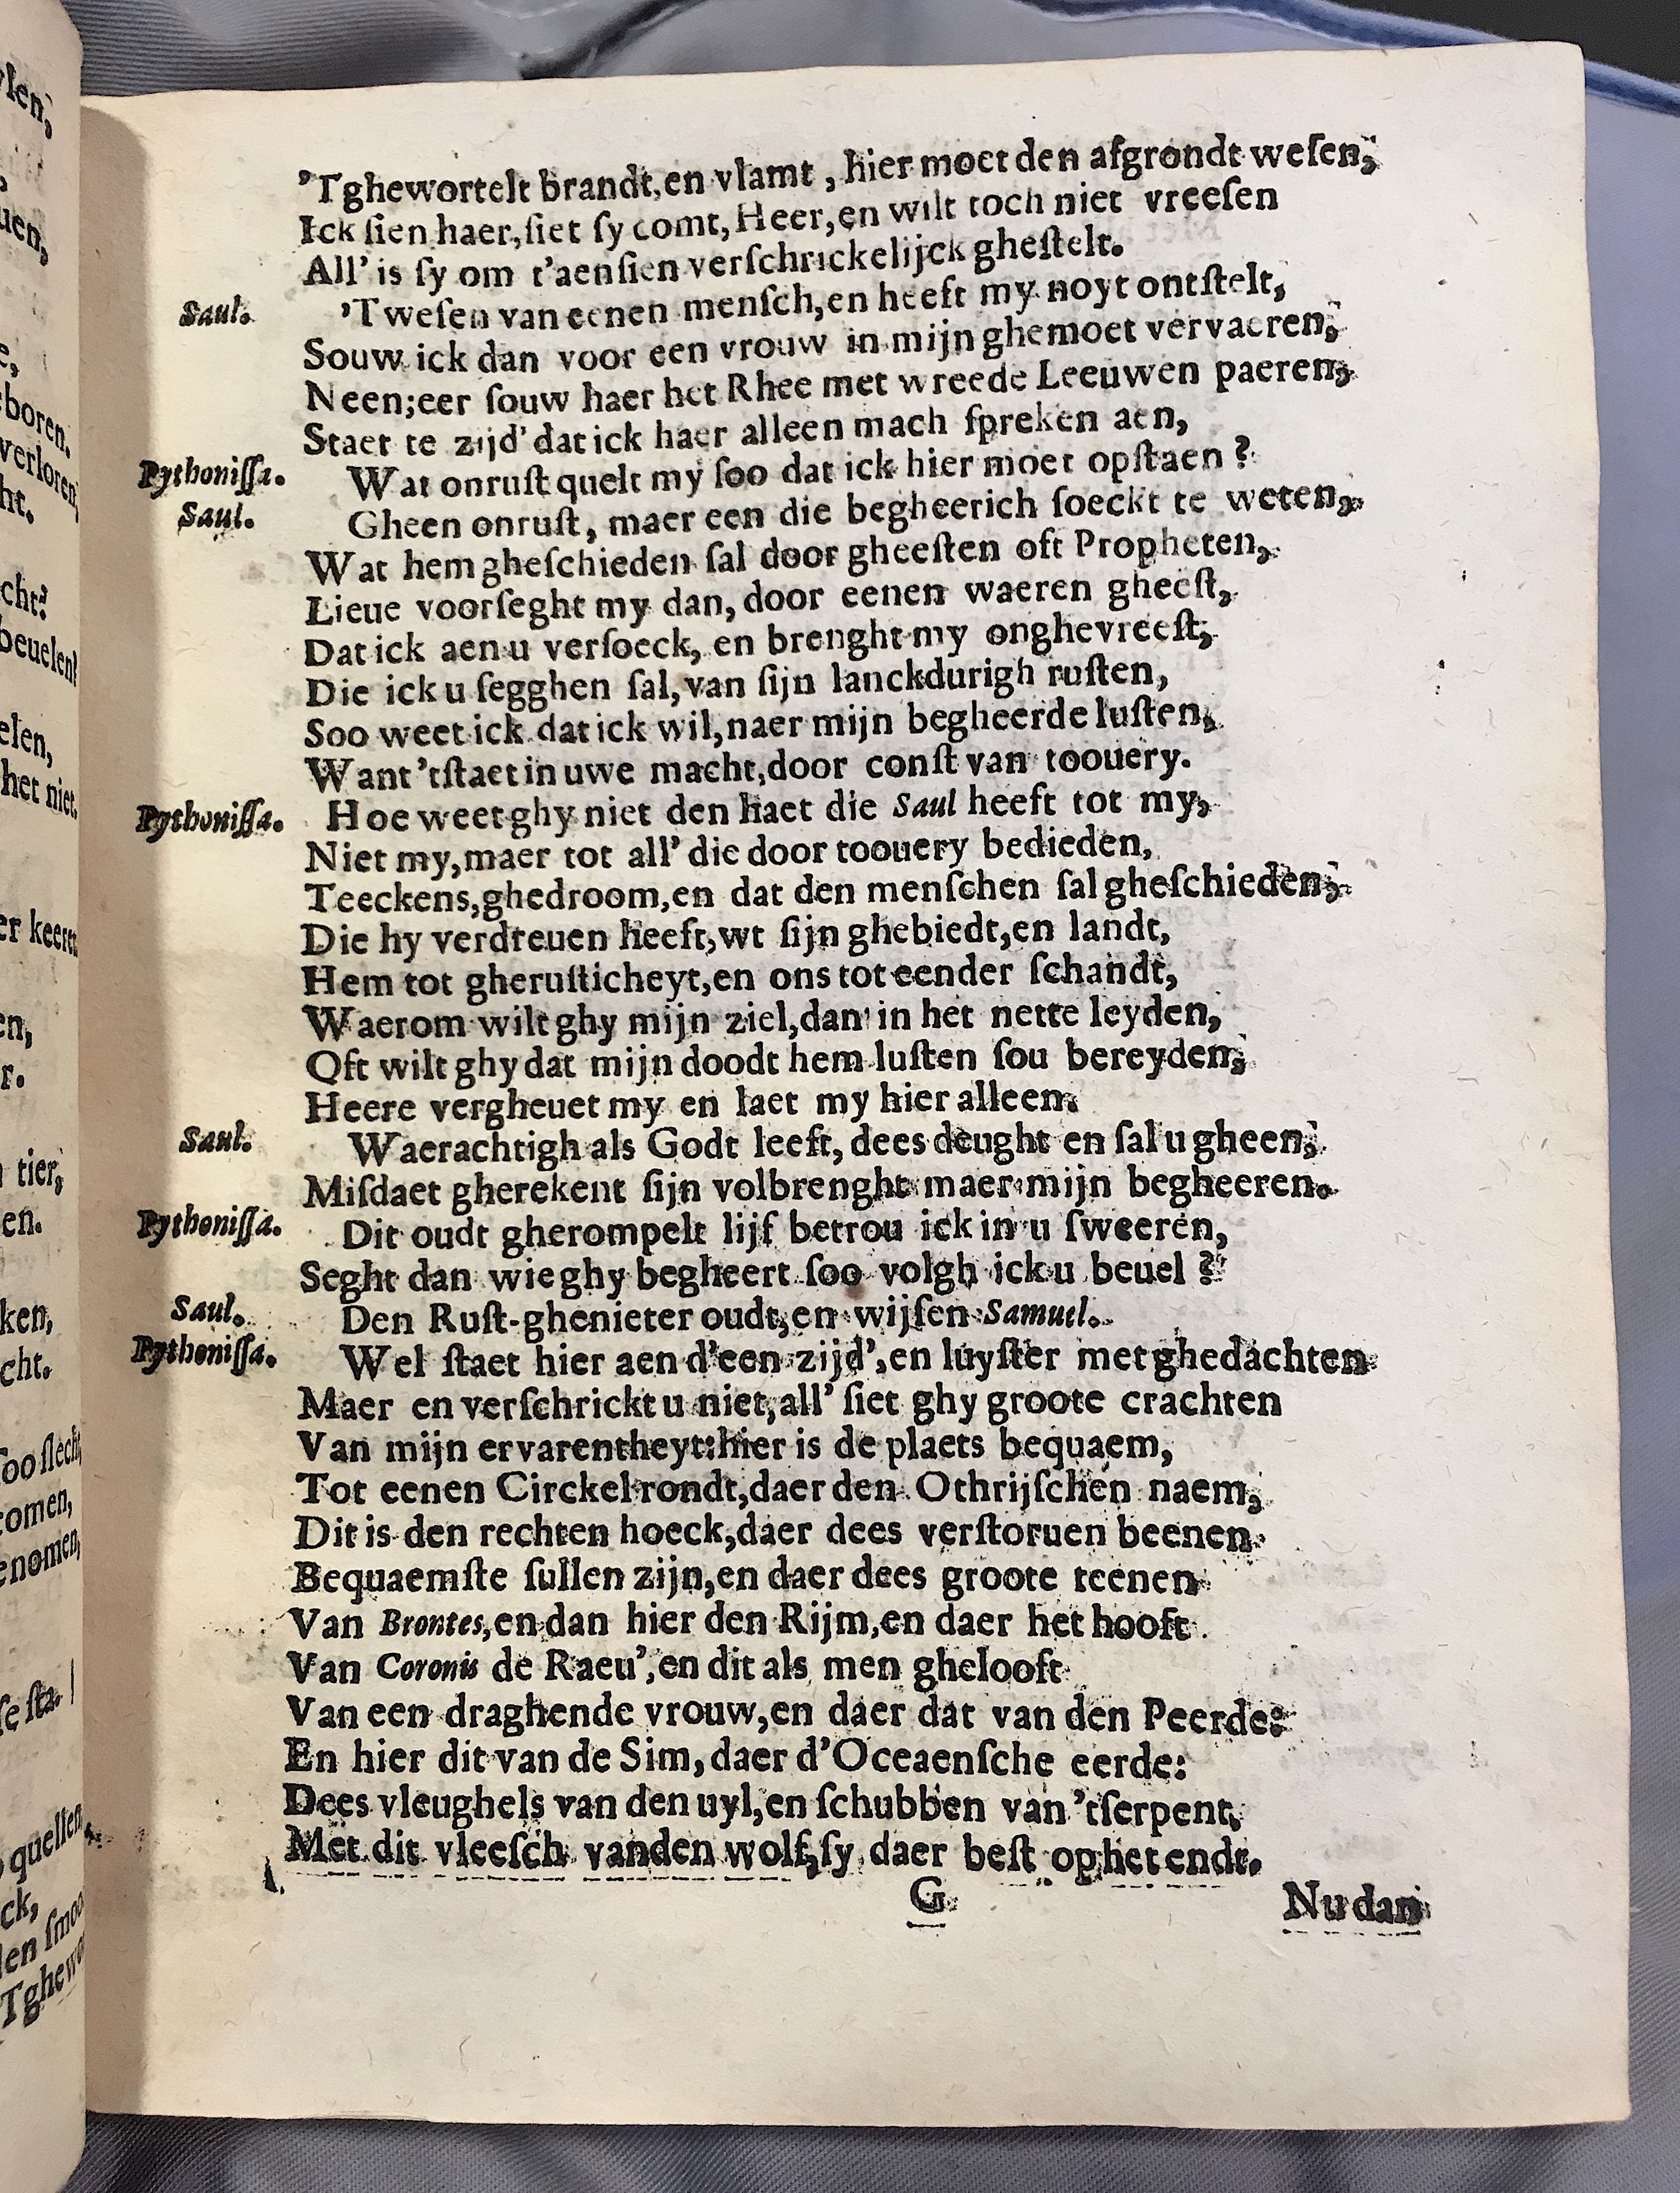 ylen,
uen,
e,
boren.
verloren,
ht.
cht?
beuelen!
elen,
het niet.
er keert:
en,
r.
tier,
en.
ken,
cht.
soo slecht,
comen,
enomen,
se sta.
quellen
ck,
len smoo
Tghewo
’Tghewortelt brandt, en vlamt, hier moet den afgrondt weſen,
Ick ſien haer, ſiet ſy comt, Heer, en wilt toch niet vreeſen
All’ is ſy om t’aenſien verſchrickelijck gheſtelt.
Saul. ’Tweſen van eenen menſch, en heeft my noyt ontſtelt,
Souw ick dan voor een vrouw in mijn ghemoet vervaeren,
Neen; eer ſouw haer het Rhee met wreede Leeuwen paeren,
Staet te zijd’ dat ick haer alleen mach ſpreken aen,
Pythoniſſa. Wat onruſt quelt my ſoo dat ick hier moet opſtaen?
Saul. Gheen onruſt, maer een die begheerich ſoeckt te weten,
Wat hem gheſchieden ſal door gheeſten oft Propheten,
Lieue voorſeght my dan, door eenen waeren gheeſt,
Dat ick aen u verſoeck, en brenght my onghevreeſt,
Die ick u ſegghen ſal, van ſijn lanckdurigh ruſten,
Soo weet ick dat ick wil, naer mijn begheerde luſten,
Want ’tſtaet in uwe macht, door conſt van toouery.
Pythoniſſa. Hoe weet ghy niet den haet die Saul heeft tot my,
Niet my, maer tot all’ die door toouery bedieden,
Teeckens, ghedroom, en dat den menſchen ſal gheſchieden,
Die hy verdreuen heeft, wt ſijn ghebiedt, en landt,
Hem tot gheruſticheyt, en ons tot eender ſchandt,
Waerom wilt ghy mijn ziel, dan in het nette leyden,
Oft wilt ghy dat mijn doodt hem luſten ſou bereyden,
Heere vergheuet my en laet my hier alleen.
Saul. Waerachtigh als Godt leeft, dees deught en ſal u gheen,
Miſdaet gherekent ſijn volbrenght maer mijn begheeren.
Pythoniſſa. Dit oudt gherompelt lijf betrou ick in u ſweeren,
Seght dan wie ghy begheert ſoo volgh ick u beuel?
Saul. Den Ruſt-ghenieter oudt, en wijſen Samuel.
Pythoniſſa. Wel ſtaet hier aen d’een zijd’, en luyſter met ghedachten
Maer en verſchrickt u niet, all’ ſiet ghy groote crachten
Van mijn ervarentheyt: hier is de plaets bequaem,
Tot eenen Circkel rondt, daer den Othrijſchen naem,
Dit is den rechten hoeck, daer dees verſtoruen beenen
Bequaemſte ſullen zijn, en daer dees groote teenen
Van Brontes, en dan hier den Rijm, en daer het hooft
Van Coronis de Raeu’, en dit als men ghelooft
Van een draghende vrouw, en daer dat van den Peerde:
En hier dit van de Sim, daer d’Oceaenſche eerde:
Dees vleughels van den uyl, en ſchubben van ’tſerpent,
Met dit vleeſch vanden wolf, ſy daer beſt op het endt.
G
Nu dan